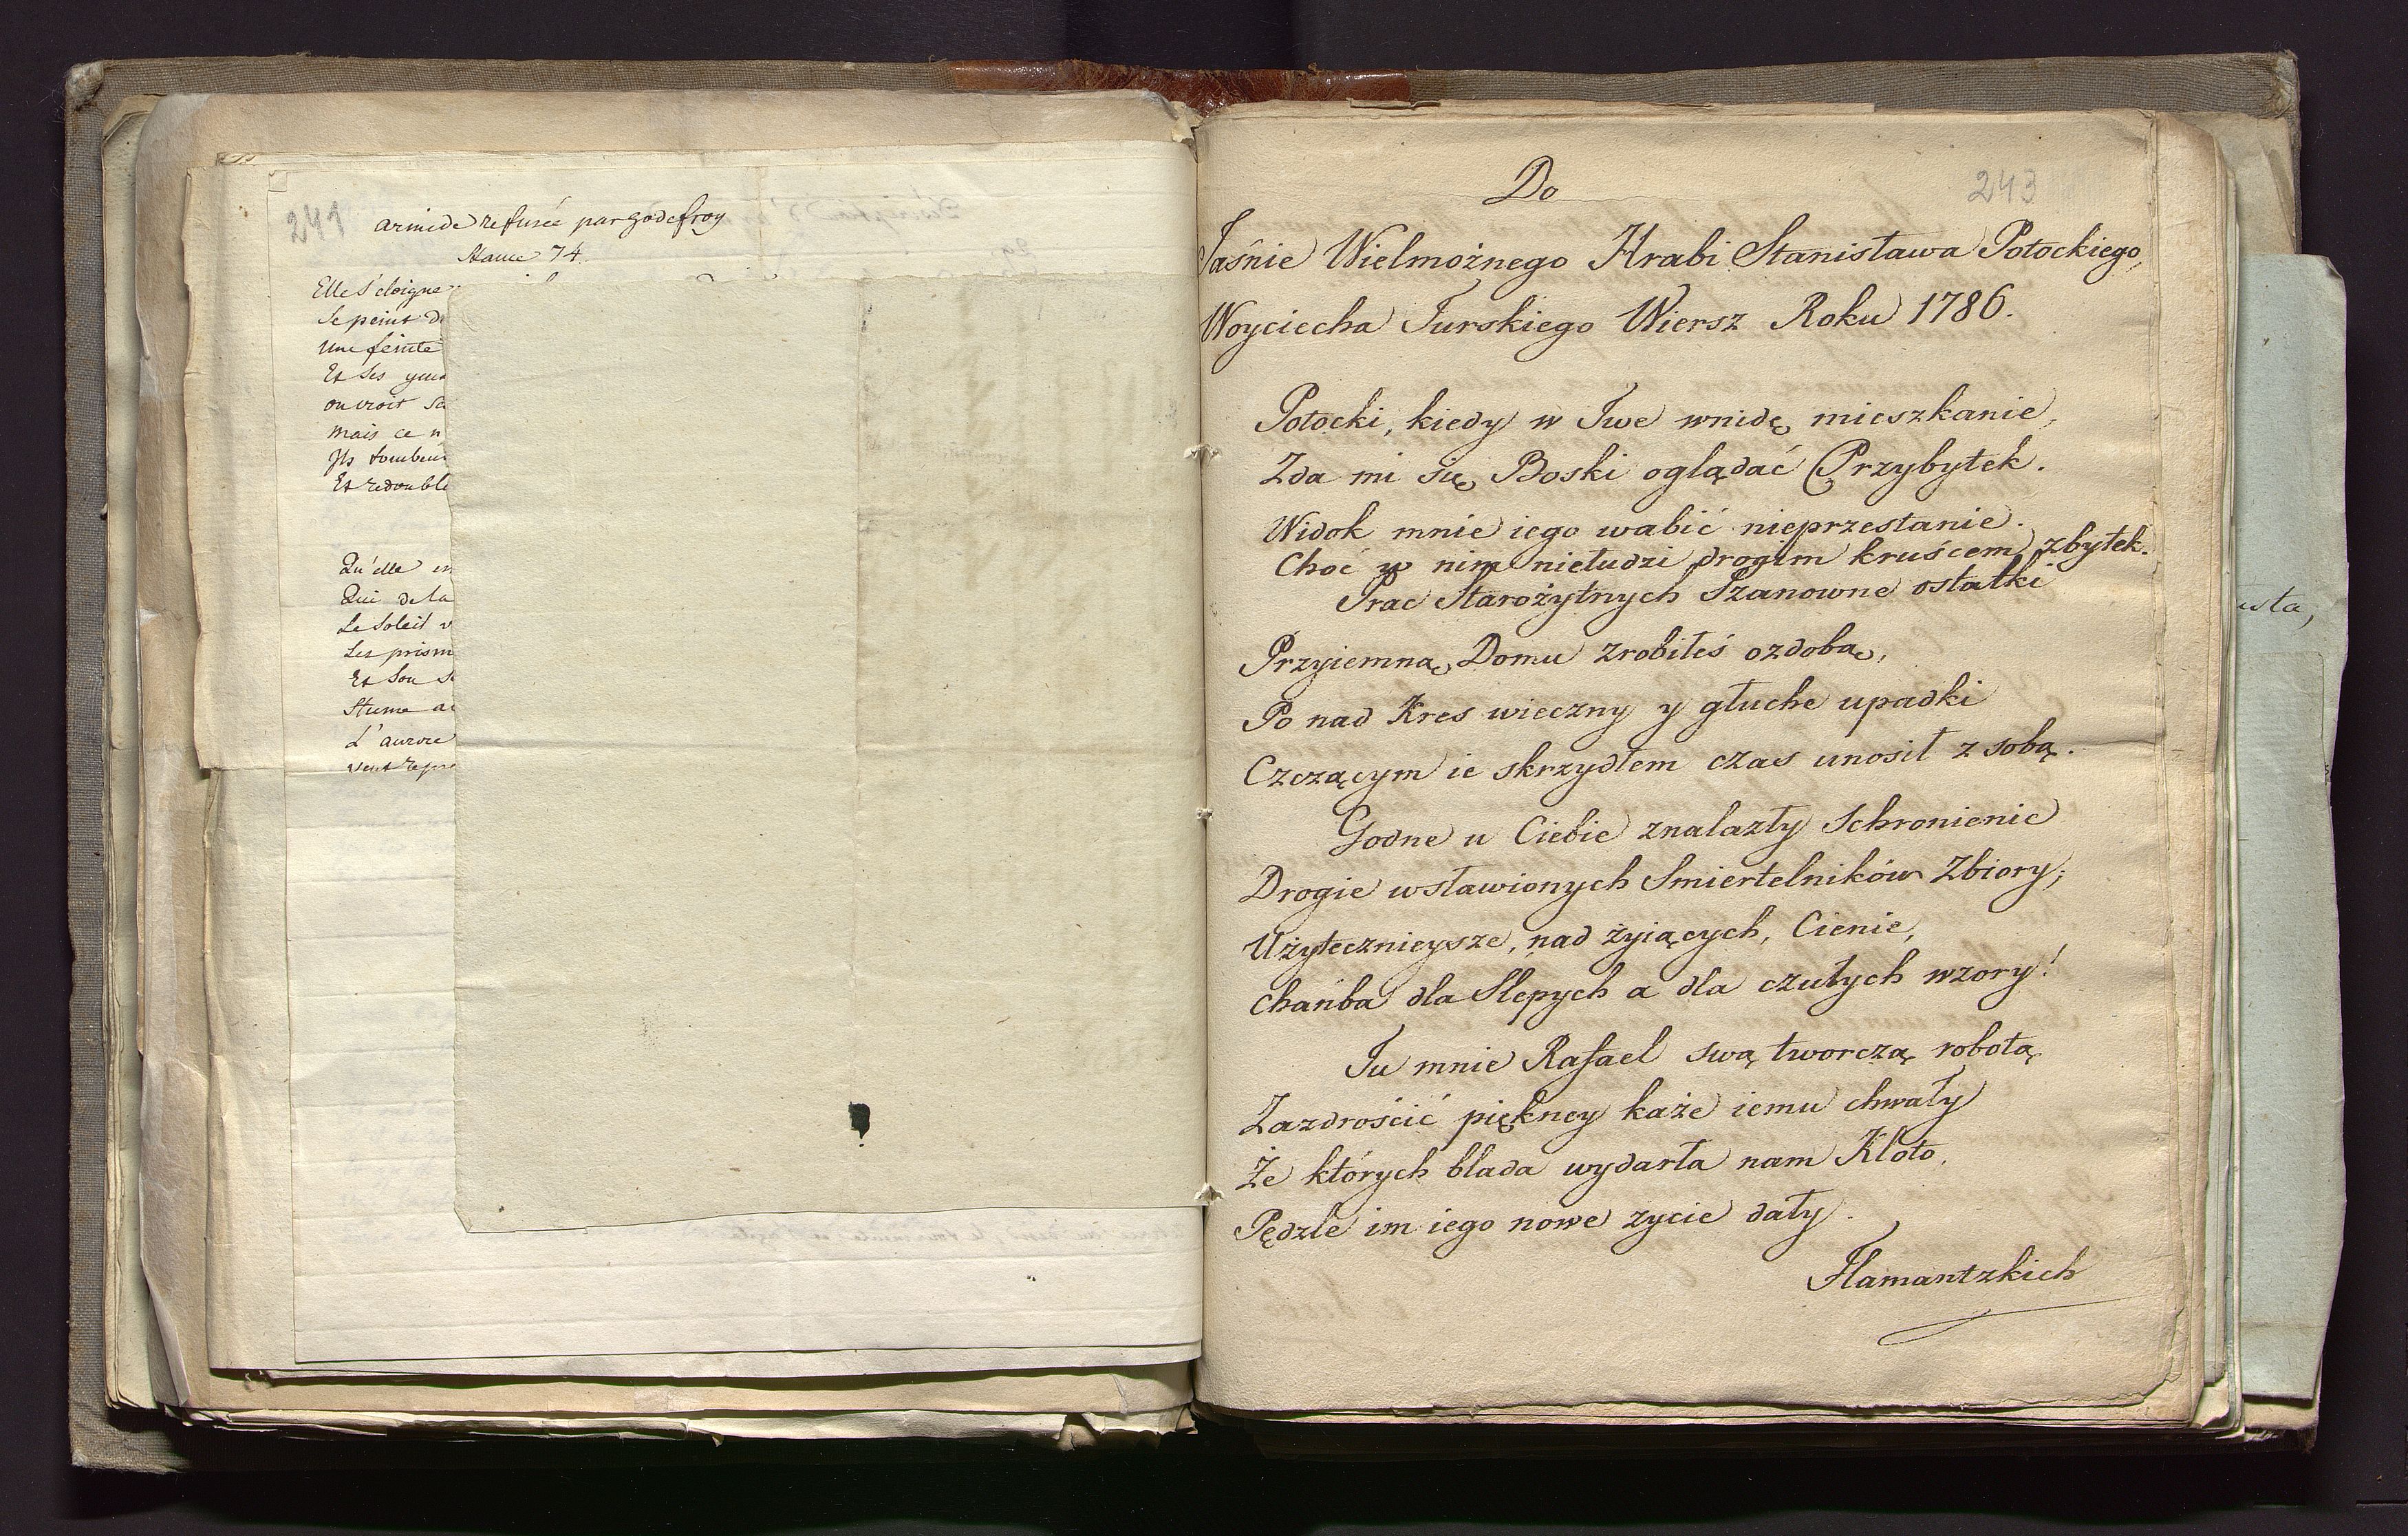 241
armide refusée par godefroy
Stance 74.
Elle s'éloigne
Se peint d
Une feinte
Et Ses yeux
on croit Sa
mais ce n
Ils tombent
Et redouble
Qu'elle en
Qui de la
Le Soleil v
Les prism
Et Son S
L'aurore
veut repre
243
Do
Jaśnie Wielmożnego Hrabi Stanisława Potockiego,
Woyciecha Turskiego Wiersz Roku 1786.
Potocki, kiedy w Twe wnidę mieszkanie,
Zda mi się Boski oglądać Przybytek.
Widok mnie iego wabić nieprzestanie.
Choć w nim niełudzi drogim kruścem zbytek.
Prac Starożytnych Szanowne ostatki
Przyiemną Domu zrobiłeś ozdobą,
Po nad Kres wieczny y głuche upadki
Czczącym ie skrzydłem czas unosił z sobą.
Godne u Ciebie znalazły Schronienie
Drogie wsławionych Smiertelników Zbiory;
Użytecznieysze, nad żyiących, Cienie,
Chańba dla Slepych a dla czułych wzory!
Tu mnie Rafael swą tworczą robotą
Zazdrościć piękney każe iemu chwały
Że których blada wydarła nam Kloto,
Pędzle im iego nowe zycie dały.
Flamantzkich
usta,